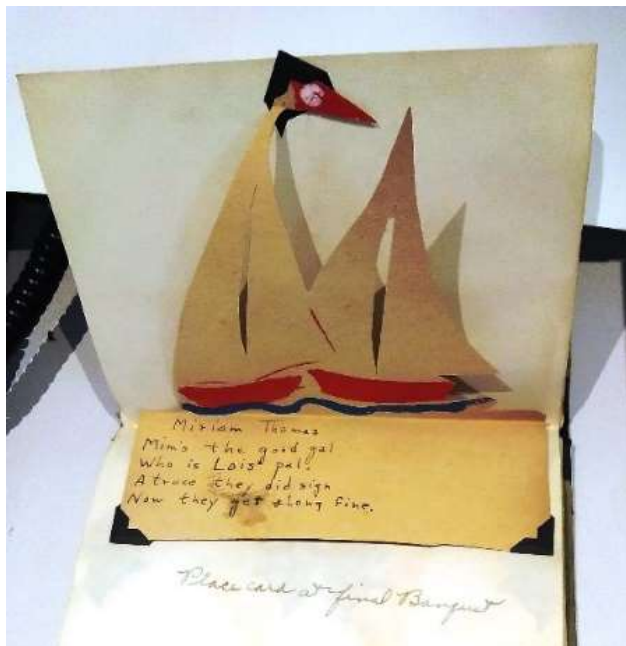 Miriam Thomas
Mim's the good gal
Who is Lois' pal.
A truce they did sign
Now they get along fine.
Place card at final Banquet